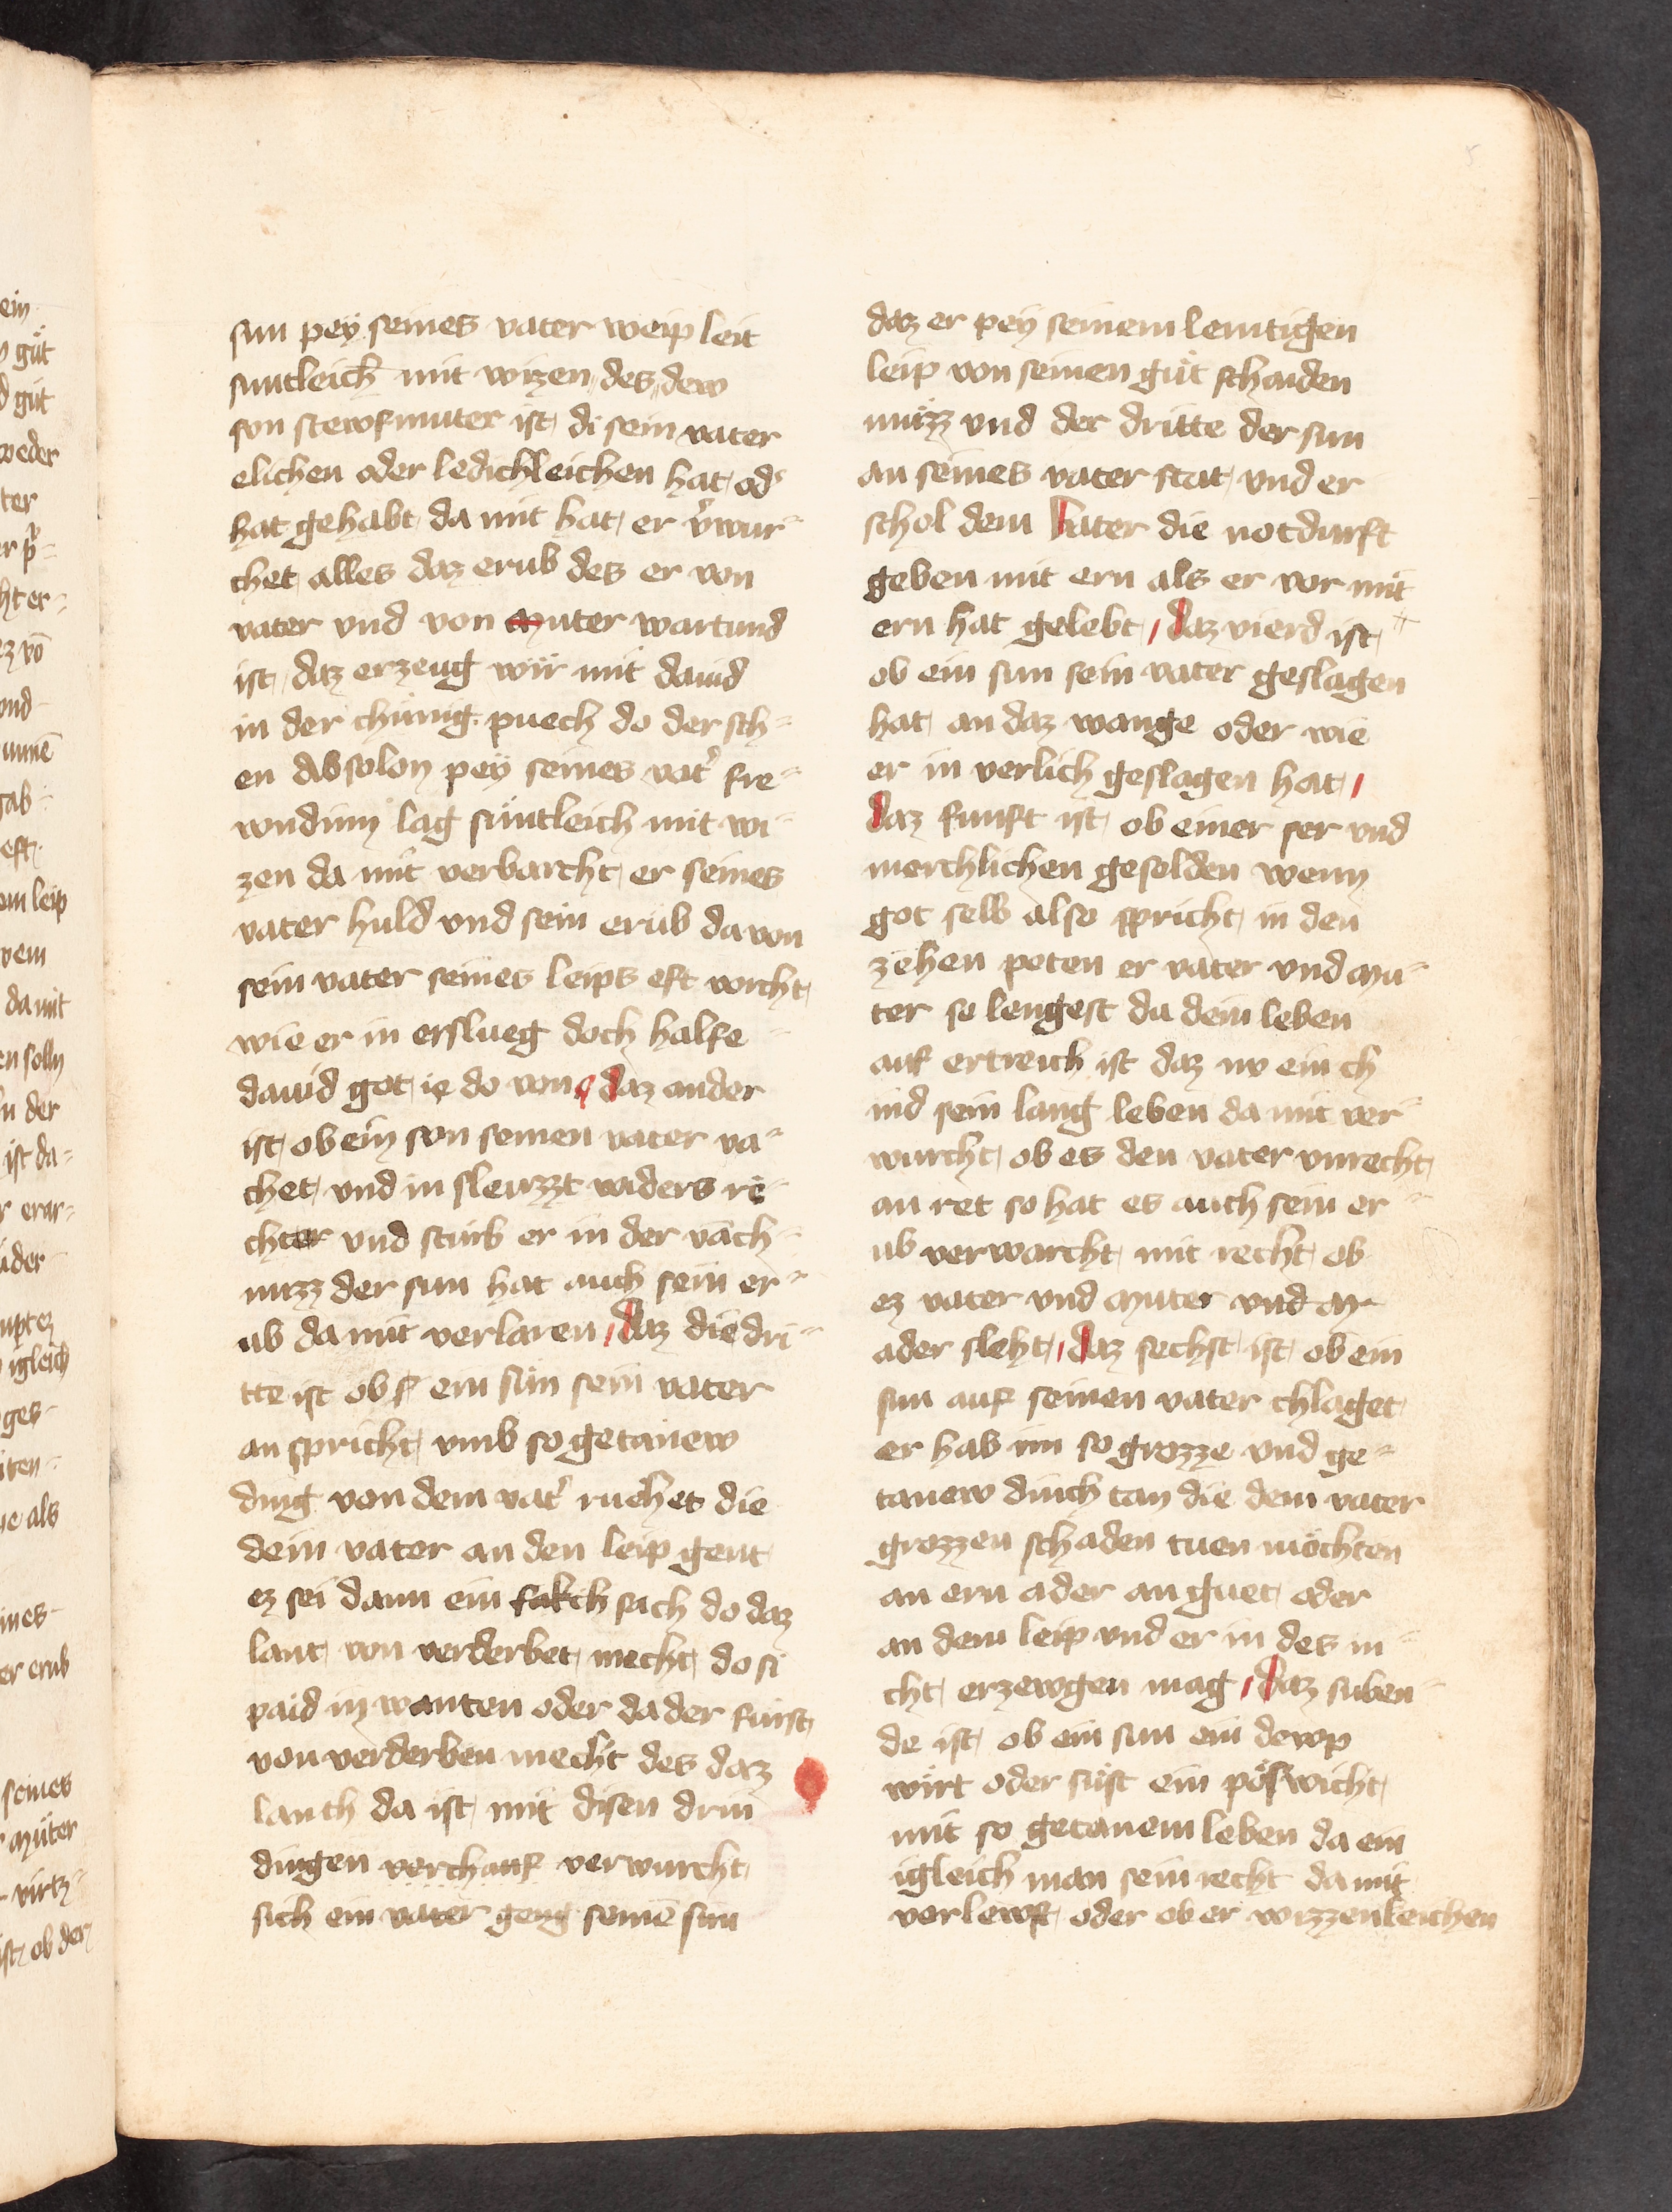 sun peÿ seines vater weip leit
suntleich mit wizen des dew
sun stewfmuter ist di sein vater
elichen oder ledichleichen hat od'
hat gehabt da mit hat er v̓wur=
chet alles daz erub des er von
vater vnd von muter wartund
ist daz erzeug wir mit dauid
in der chünig puech do der sch=
en Absolon peÿ seines vat' fre=
wndinn lag süntleich mit wi=
zen da mit verbarcht er seines
vater huld vnd sein erüb da von
sein vater seines leips eft vorcht
wie er in erslueg doch half e
dauid got ie do von daz ander
ist ob ein son seinen vater va=
chet vnd in sleuzzt widers re=
chter vnd stirb er in der vāch=
nuzz der sun hat auch sein er=
ub da mit verlaren daz die dri=
tte ist ob ein sün sein vater
an spricht vmb so getanew
ding von dem vat' ruchet die
dem vater an den leip gent
ez sei dann ein sach do daz
lant von verderbet mecht do si
paid in wanten oder da der fürst
von verderben mecht des daz
lanth da ist mit disen drin
dingen verchauf verwurcht
sich ein vater geng seinē sun
daz er peÿ seinem lemtigen
leip von seinen güt schaiden
müzz vnd der dritte der sun
an seines vater stat vnd er
schol dem vater die notdurft
geben mit ern als er vor mit
ern hat gelebt daz vierd ist
ob ein sun sein vater geslagen
hat an daz wange oder wie
er in verlich geslagen hat
daz funft ist ob einer ser vnd
merchlichen geselden wenn
got selb also spricht in den
zehen peten er vater vnd mu=
ter so lengest du dein leben
auf ertreich ist daz nv ein ch
ind sein lang leben da mit ver=
wurcht ob es den vater vnrecht
an ret so hat es auch sein er=
ub verwarcht mit recht ob
ez vater vnd muter vnd m
ader sleht daz sechst ist ob ein
sun auf seinen vater chlaget
er hab im so grozze vnd ge=
tanew dinch tan die dem vater
grozzen schaden tuen möchten
an ern ader an guet oder
an dem leip vnd er in des ni=
cht erzewgen mag daz suben=
de ist ob ein sun ein dewp
wirt oder süst ein pöswicht
mit so getanem leben da ein
igleich man sein recht da mit
verlewst oder ob er wizzenleichen